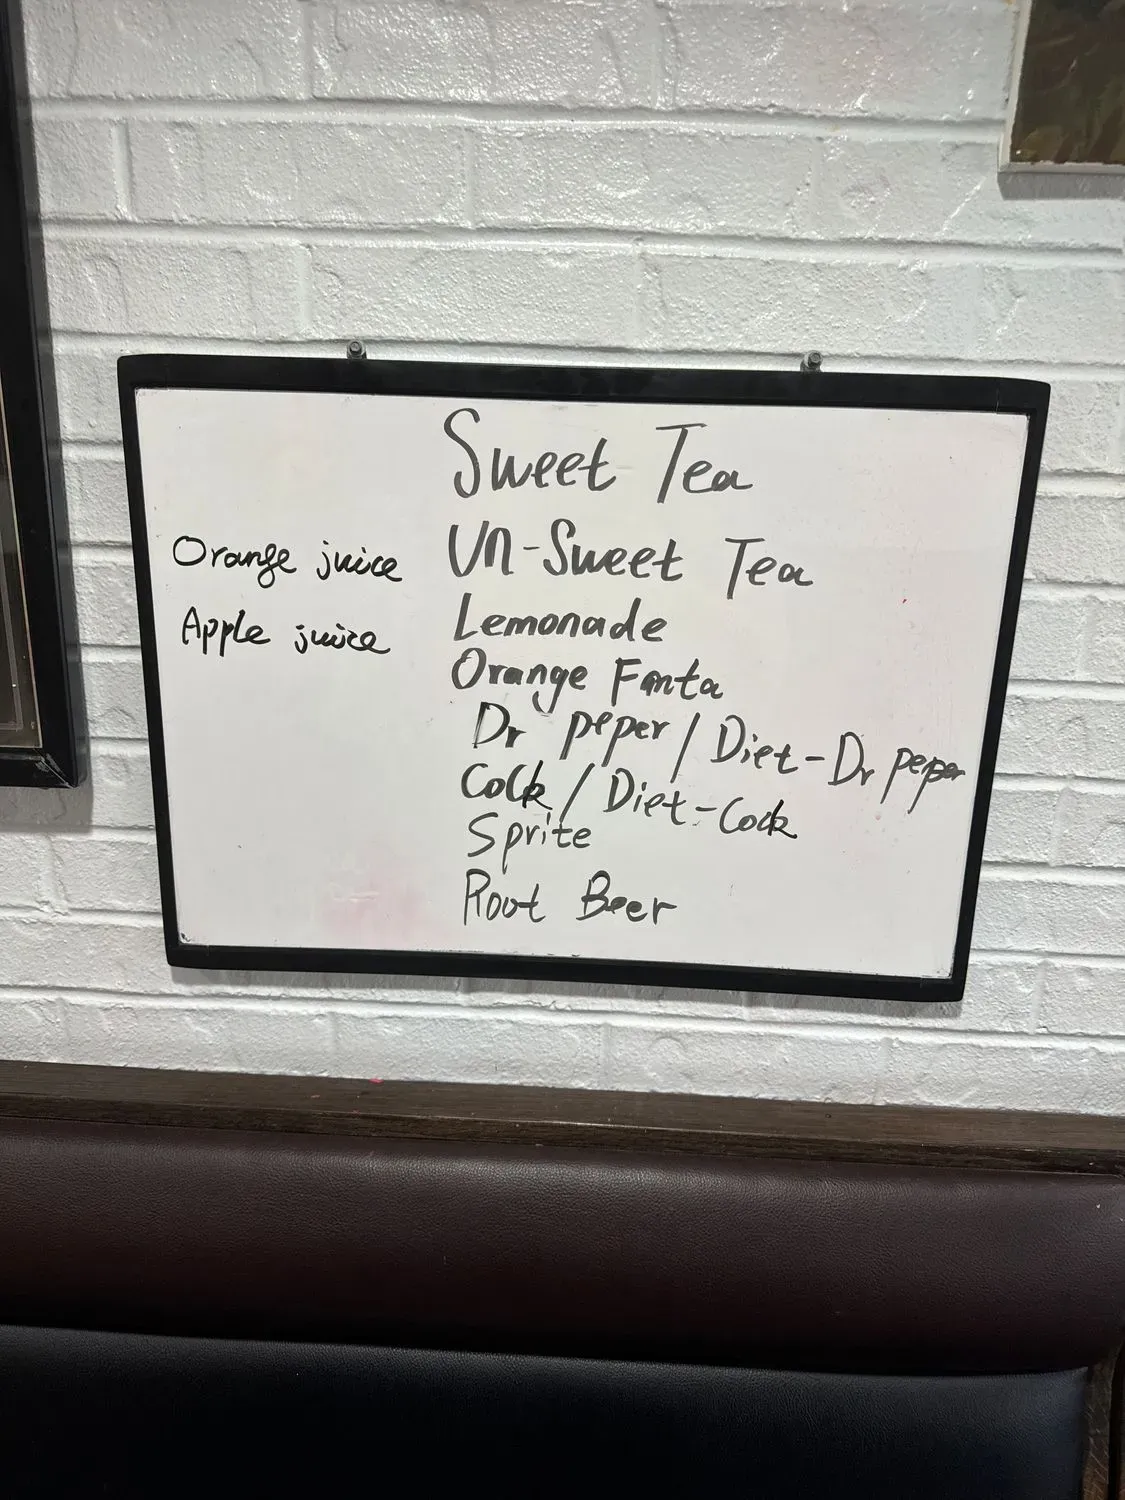 Sweet Tea
Orange juice
Un-Sweet Tea
Apple juice
Lemonade
Orange Fanta
Dr peper / Diet-Dr peper
Cock / Diet-Cock
Sprite
Root Beer